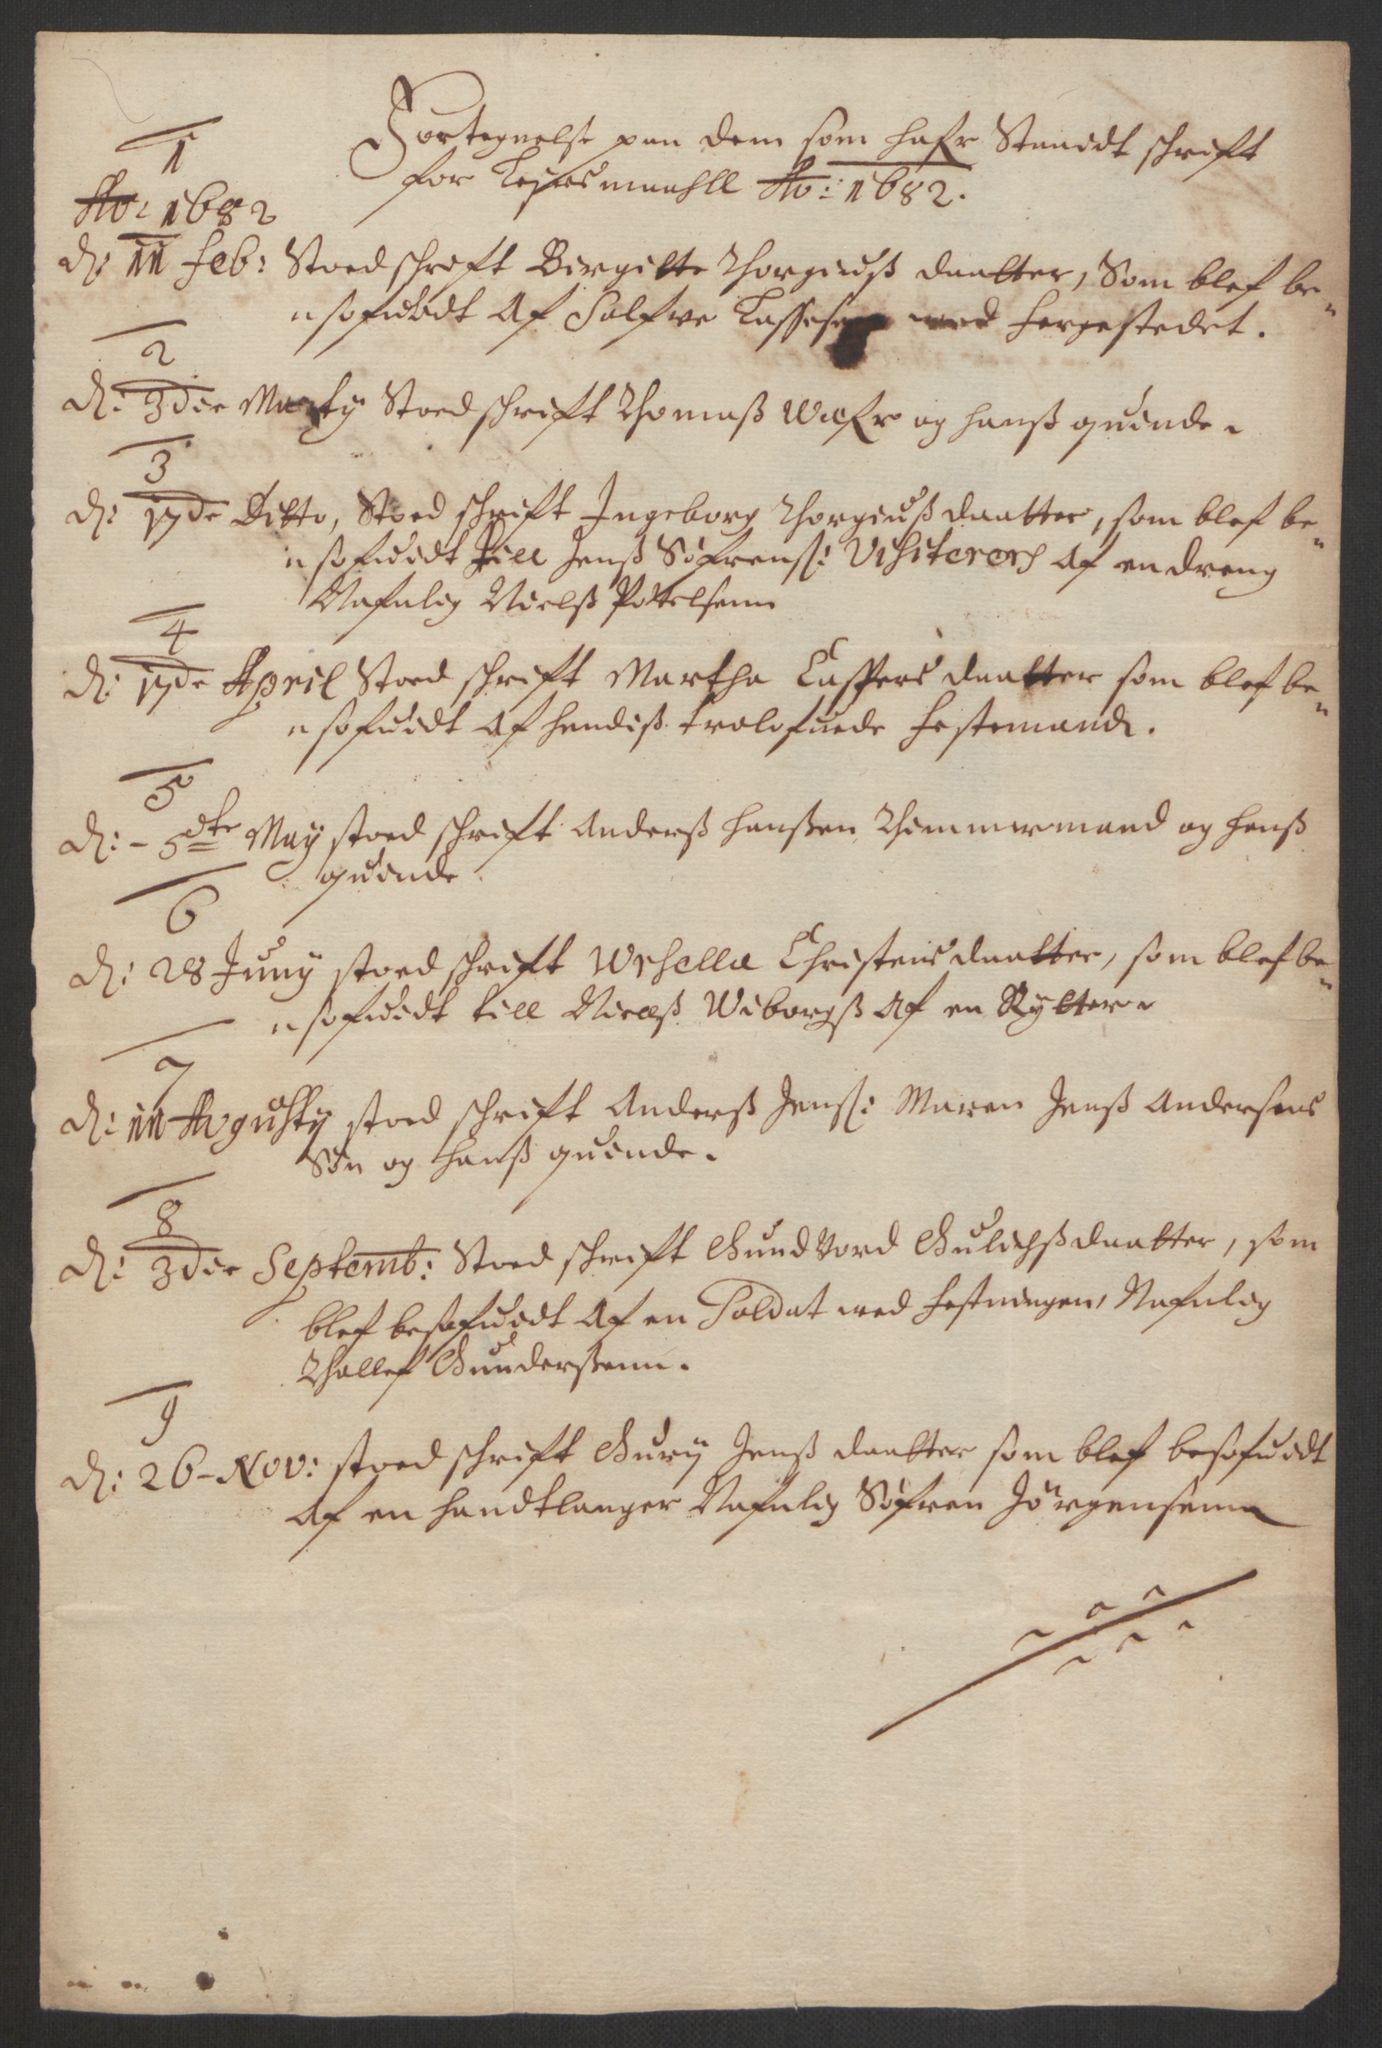 Fortegnelse paa dem som hafr Staaidt schrift
for Leyersmaahll Ao: 1682.
1
Ao: 1682
d: 11 feb: Stoed schrift Birgitte Thorgiuß daatter, Som blef be=
=sofuidt Af Solfve Lassesen wed fergestedet.
2
d: 3die Marty Stoed schrift Thomaß Wæfr og hanß quinde.
3
d: 17de Ditto, Stoed schrift Ingeborg Thorgiuß daatter, som blef be=
=sofuidt till Jenß Søfrenß: Visiterers Af en dreng
Nafnlig Nielß Pottelsenn
4
d: 17de April Stoed schrift Martha Caspers daatter som blef be=
=sofuidt Af hendiß trolofuede festemand.
5
d: - 5te May stoed schrift Anderß Hanßen Thimmermand og hanß
quinde
6
d: 28 Juny stoed schrift Wrsella Christens daatter, som blef be=
=sofuidt till Nielß Wiborgß Af en Rytter.
7
d: 11 Augusty stoed schrift Anderß Jenß: Maren Jenß Andersens
Søn og hanß quinde.
8
d: 3die Septemb: Stoed schrift Gundvord Gulichß daatter, som
blef besofuidt Af en Soldat wed festningen, Nafnlig
Thollef Gunderßenn.
9
d: 26 - Nov: stoed schrift Gurij Jenß daatter som blef besofuidt
Af en handtlanger Nafnlig Søfren Jørgensenn